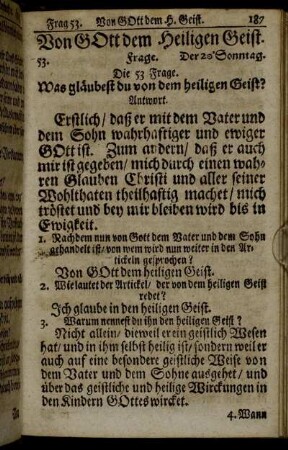 Frag 53. Von GOtt dem H. Geist. 187
Von GOtt dem Heiligen Geist.
53. Frage. Der 20 Sonntag.
Die 53 Frage.
Was gläubest du von dem heiligen Geist?
Antwort.
Erstlich/ daß er mit dem Vater und
dem Sohn wahrhaftiger und ewiger
GOtt ist. Zum andern/ daß er auch
mir ist gegeben/ mich durch einen wah-
ren Glauben Christi und aller seiner
Wohlthaten theilhaftig machet/ mich
tröstet und bey mir bleiben wird bis in
Ewigkeit.
1. Nachdem nun von Gott dem Vater und dem Sohn
gehandelt ist/ von wem wird nun weiter in den Ar-
tickeln gesprochen?
Von GOtt dem heiligen Geist.
2. Wie lautet der Artickel/ der von dem heiligen Geist
redet?
Ich glaube in den heiligen Geist.
3. Warum nennest du ihn den heiligen Geist?
Nicht allein/ dieweil er ein geistlich Wesen
hat/ und in ihm selbst heilig ist/ sondern weil er
auch auf eine besondere geistliche Weise von
dem Vater und dem Sohne ausgehet/ und
über das geistliche und heilige Wirckungen in
den Kindern GOttes wircket.
4. Wann